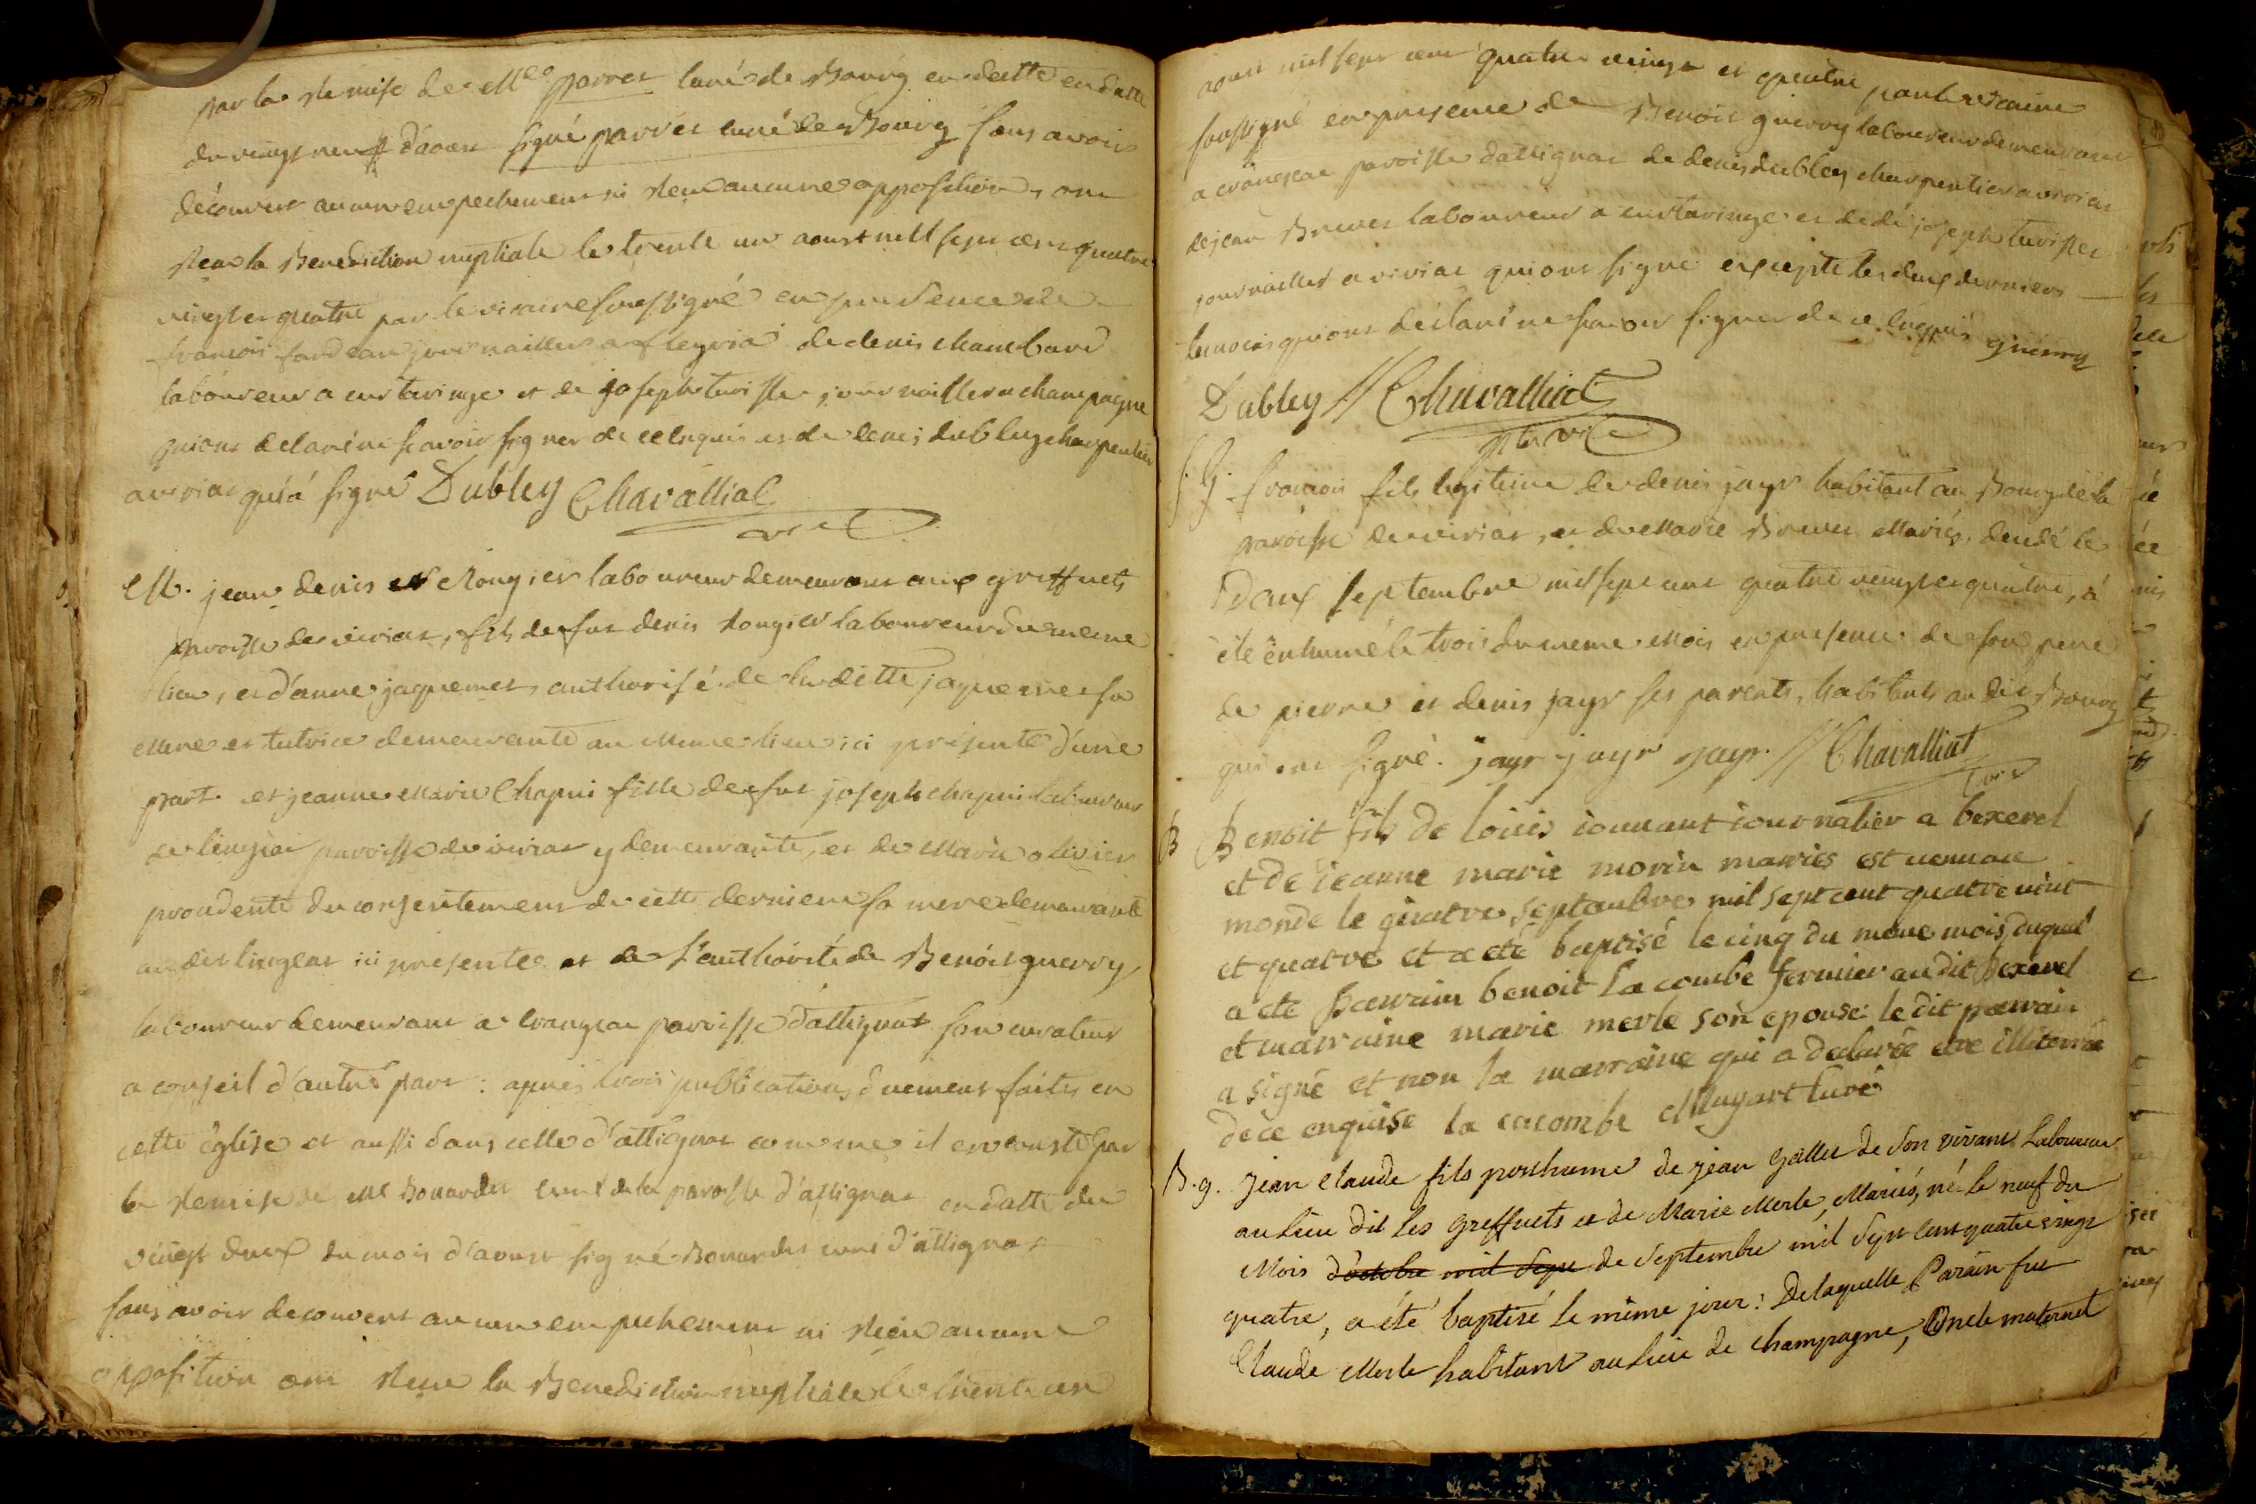 par la remise de Mre parret curé de Bourg en dette en datte
du vingt neuf d'aoust signé parret curé de Bourg sans avoir
découvert aucun empechement ni reçu aucune opposition, ont
reçu la Benediction nuptiale le trente un aoust mill sept cent quatre
vingt et quatre par le vicaire soussigné en presence de
francois fardeau journaillier a fleyria de denis chambard
laboureur a curtaringe et de joseph turissle journaillier a champagne
qui ont declaré ne scavoir signer de ce enquis et de denis dubley charpentier
a viriat qui a signé Dubley Chavalliat
vic
M. jean denis Rougier laboureur demeurant aux greffuets
paroisse de viriat, fils de fut denis rougier laboureur du meme
lieu, et d'anne jaquemet, authorisé de ladette jaquemet sa
Mere et tutrice demeurante au Meme lieu ici présente d'une
part et jeanne Marie Chapui fille de fut joseph chapui laboureur
de lingeat paroisse de viriat y demeurante, et de Marie olivier
procedente du consentement de cette derniere sa mere demeurante
au dit lingeat ici presente et de l'authorité de Benoit guerry
laboureur demeurant a crangeat paroisse d'attignat son curateur
a conseil d'autre part : apres trois publications duement faites en
cette église et aussi dans celle d'attignat comme il en conste par
la Remise de Mre Bouardet curé de la paroisse d'attignat en datte du
vingt deux du mois d'aoust signé Bouardet curé d'attignat
sans avoir decouvert aucun empechement ni reçu aucune
opposition ont reçu la Benediction nuptiale le trente un
aoust mil sept cent quatre vingt et quatre par le vicaire
soussigné en presence de Benoit guerry laboureur demeurant
a crangeat paroisse d'attignat de denis dubley charpentier a viriat
de jean Brevet laboureur a curtaringe et de joseph turissle
journaillier a viriat qui ont signé excepté les deux derniers
temoins qui ont déclaré ne scavoir signer de ce enquis guerry
Dubley // Chavalliat
ptre vic
S. G. francois fils legitime de denis jayr habitant au Bourg de la
paroisse de viriat, et de Marie Brevet Mariés, decedé le
deux septembre mil sept cent quatre vingt et quatre, a
été enhumé le trois du meme Mois en presence de son pere
de pierre et denis jayr ses parents, habitants au dit Bourg
qui ont signé. jayr jayr jayr. // Chavalliat
vic
B Benoit fils de loüis iounant iournalier a bexerel
et de ieanne marie morin mariés est venu au
monde le quatre septembre mil sept cent quatre vint
et quatre et a eté baptisé le cinq du même mois duquel
a eté parrain benoit la combe fermier audit Bexerel
et marraine marie merle son epouse le dit parrain
a signé et non la marraine qui a declarée etre illiterée
de ce enquise la cacombe Muyart Curé
B. g. Jean Claude fils posthume de jean Gallet de Son vivant Laboureur
au Lieu dit Les Greffuets et de Marie Merle, Mariés, né le neuf du
Mois d'octobre mil Sept de Septembre mil Sept Cent quatre vingt
quatre, a été baptisé le même jour : De laquelle Parain fut
Claude Merle habitant au Lieu de Champagne, Oncle maternel